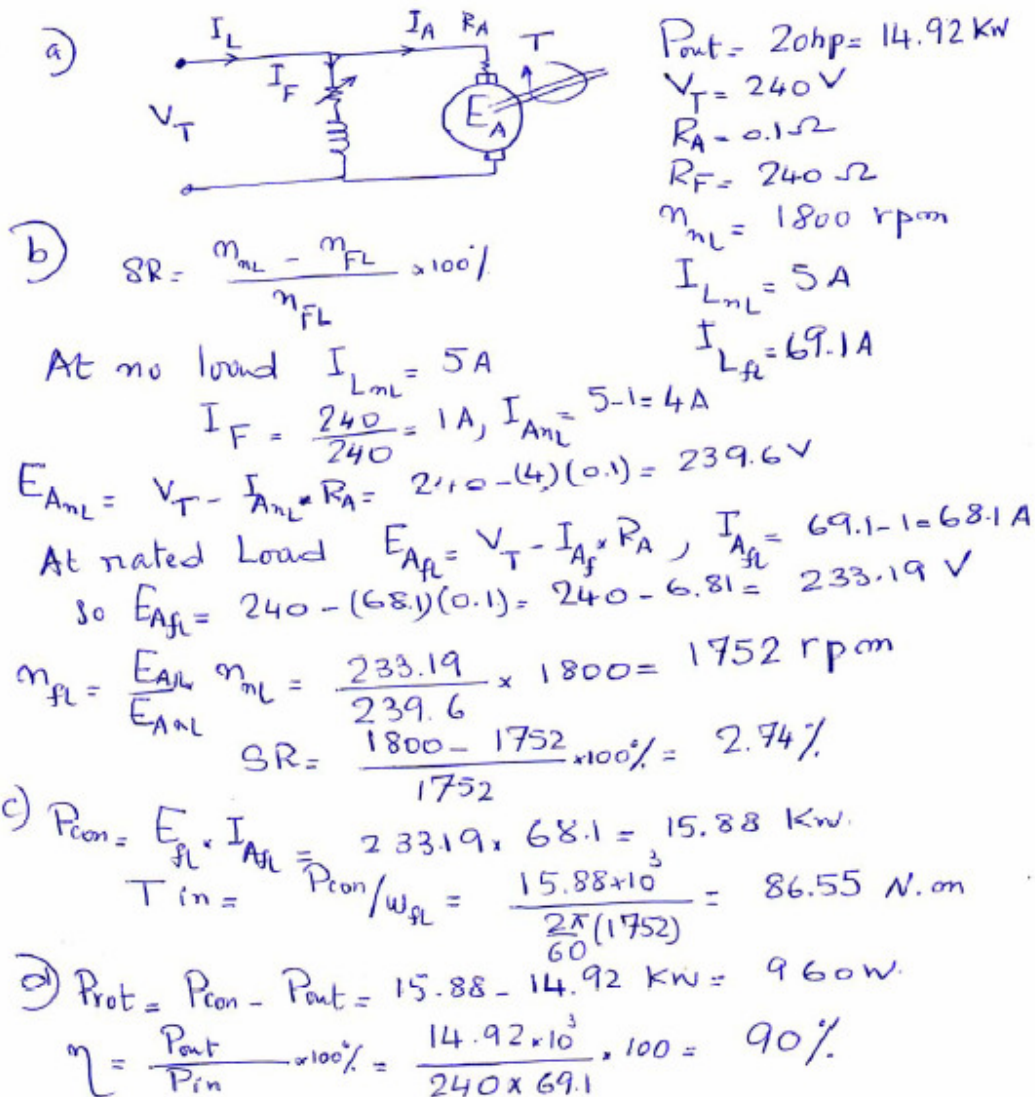 a) I_L I_A R_A T
I_F E_A
V_T
P_out = 20hp = 14.92 KW
V_T = 240 V
R_A = 0.1 Ω
R_F = 240 Ω
n_nL = 1800 rpm
I_LnL = 5 A
I_Lfl = 69.1 A
b) SR = (n_nL - n_FL) / n_FL × 100%
At no load I_LnL = 5 A
I_F = 240/240 = 1 A, I_AnL = 5-1 = 4 A
E_AnL = V_T - I_AnL × R_A = 240 - (4)(0.1) = 239.6 V
At rated Load E_AfL = V_T - I_Af × R_A , I_AfL = 69.1 - 1 = 68.1 A
so E_AfL = 240 - (68.1)(0.1) = 240 - 6.81 = 233.19 V
n_fL = E_AfL/E_AnL n_nL = 233.19/239.6 × 1800 = 1752 rpm
SR = (1800 - 1752)/1752 × 100% = 2.74%
c) P_con = E_fL × I_AfL = 233.19 × 68.1 = 15.88 KW.
T in = P_con/ω_fL = 15.88×10³ / (2π/60 (1752)) = 86.55 N.m
d) P_rot = P_con - P_out = 15.88 - 14.92 KW = 960 W.
η = P_out/P_in × 100% = 14.92×10³ / (240 × 69.1) × 100 = 90%